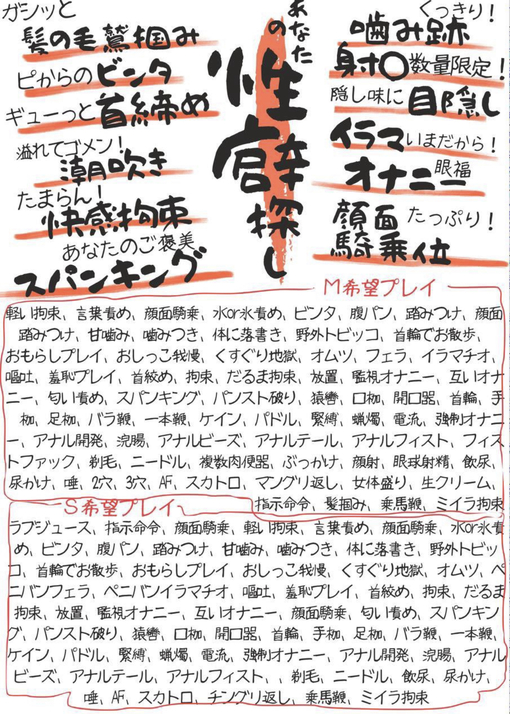 あなた
の
性癖探し
ガシッと
髪の毛鷲掴み
ピからのビンタ
ギューっと首締め
溢れてゴメン!
潮吹き
たまらん!
快感拘束
あなたのご褒美
スパンキング
くっきり!
噛み跡
射〇数量限定!
隠し味に目隠し
イラマいまだから!
オナニー眼福
顔面
騎乗位
たっぷり!
M希望プレイ
軽い拘束、言葉責め、顔面騎乗、水or氷責め、ビンタ、腹パン、踏みつけ、顔面
踏みつけ、甘噛み、噛みつき、体に落書き、野外トビッコ、首輪でお散歩、
おもらしプレイ、おしっこ我慢、くすぐり地獄、オムツ、フェラ、イラマチオ、
嘔吐、羞恥プレイ、首絞め、拘束、だるま拘束、放置、監視オナニー、互いオナ
ニー、匂い責め、スパンキング、パンスト破り、猿轡、口枷、開口器、首輪、手
枷、足枷、バラ鞭、一本鞭、ケイン、パドル、緊縛、蝋燭、電流、強制オナニ
ー、アナル開発、浣腸、アナルビーズ、アナルテール、アナルフィスト、フィス
トファック、剃毛、ニードル、複数肉便器、ぶっかけ、顔射、眼球射精、飲尿、
尿かけ、唾、2穴、3穴、AF、スカトロ、マングリ返し、女体盛り、生クリーム、
指示命令、髪掴み、乗馬鞭、ミイラ拘束
S希望プレイ
ラブジュース、指示命令、顔面騎乗、軽い拘束、言葉責め、顔面騎乗、水or氷責
め、ビンタ、腹パン、踏みつけ、甘噛み、噛みつき、体に落書き、野外トビッ
コ、首輪でお散歩、おもらしプレイ、おしっこ我慢、くすぐり地獄、オムツ、ペ
ニバンフェラ、ペニバンイラマチオ、嘔吐、羞恥プレイ、首絞め、拘束、だるま
拘束、放置、監視オナニー、互いオナニー、顔面騎乗、匂い責め、スパンキン
グ、パンスト破り、猿轡、口枷、開口器、首輪、手枷、足枷、バラ鞭、一本鞭、
ケイン、パドル、緊縛、蝋燭、電流、強制オナニー、アナル開発、浣腸、アナル
ビーズ、アナルテール、アナルフィスト、、剃毛、ニードル、飲尿、尿かけ、
唾、AF、スカトロ、チングリ返し、乗馬鞭、ミイラ拘束